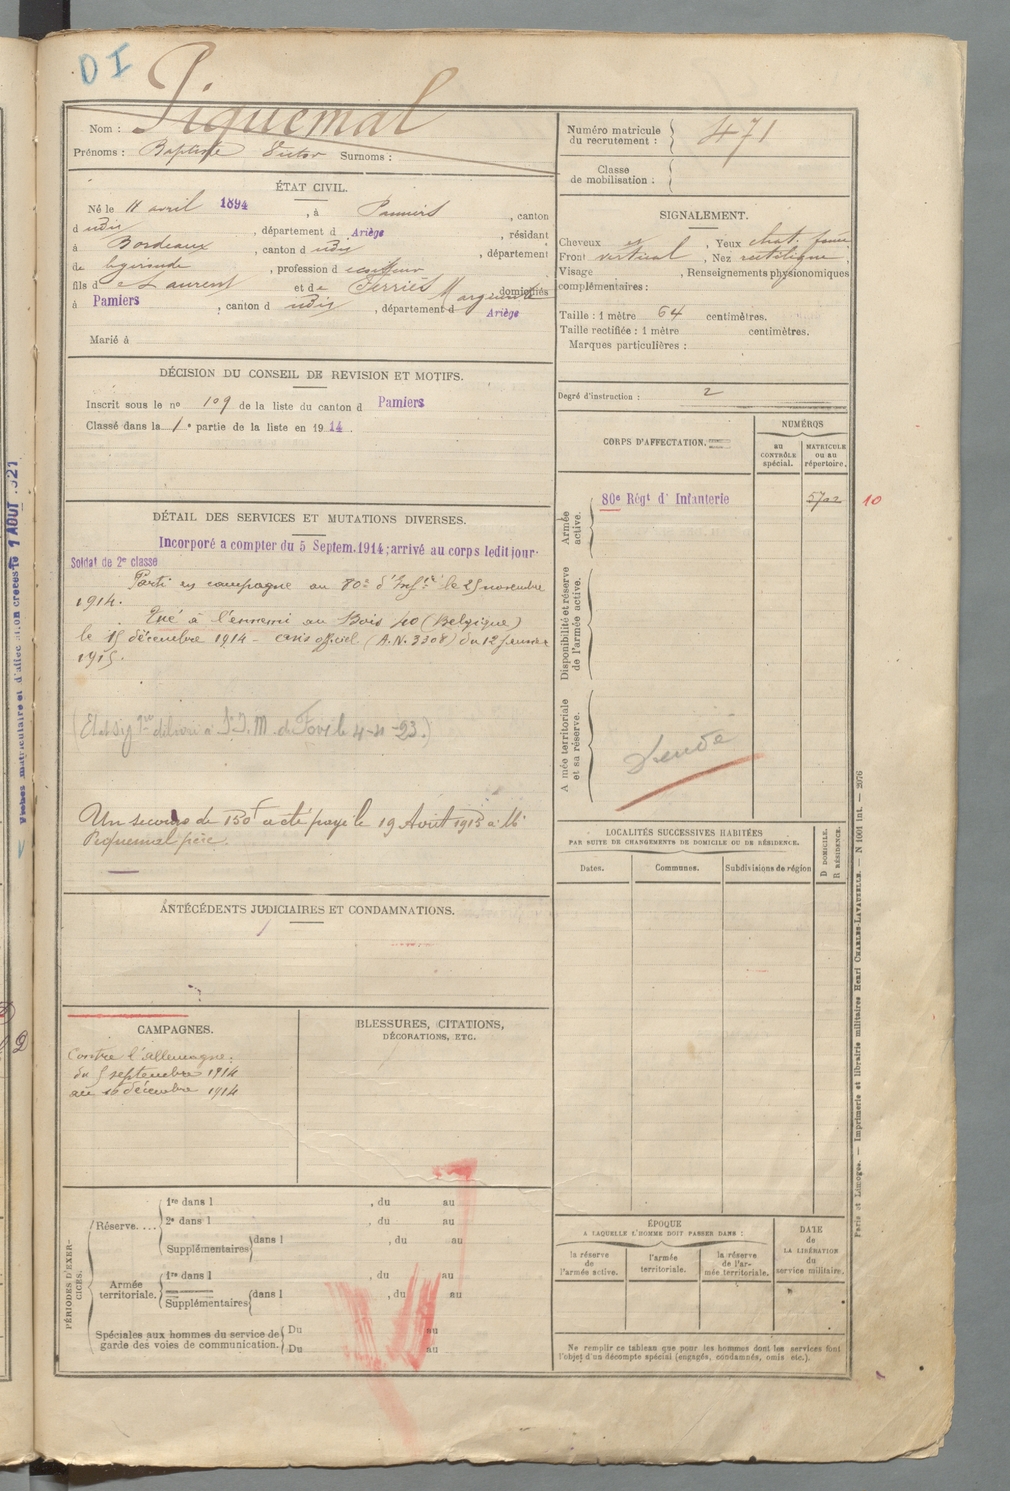 DI
Piquemal
Nom :
Prénoms : Baptiste Victor Surnoms :
Numéro matricule
du recrutement : 471
Classe
de mobilisation :
ÉTAT CIVIL.
Né le 11 avril 1894, à Pamiers, canton
d udit, département d Ariège, résidant
à Bordeaux, canton d udit, département
de la gironde, profession d e coiffeur
fils d e Laurent et de Ferriès Marguerite, domiciliés
à Pamiers, canton d udit, département d Ariège
Marié à
SIGNALEMENT.
Cheveux Yeux chat.
Front vertical, Nez rectiligne,
Visage , Renseignements physionomiques
complémentaires :
Taille : 1 mètre 64 centimètres.
Taille rectifiée : 1 mètre centimètres.
Marques particulières :
Degré d'instruction : 2
DÉCISION DU CONSEIL DE REVISION ET MOTIFS.
Inscrit sous le no 109 de la liste du canton d Pamiers
Classé dans la 1e partie de la liste en 1914.
CORPS D'AFFECTATION.
NUMÉROS
au
CONTRÔLE
spécial.
MATRICULE
ou au
répertoire.
Armée
active.
80e Régt d'Infanterie 5702 10
Disponibilité et réserve
de l'armée active.
Armée territoriale
et sa réserve.
DÉTAIL DES SERVICES ET MUTATIONS DIVERSES.
Incorporé a compter du 5 Septem. 1914; arrivé au corps ledit jour.
Soldat de 2e classe
Parti en campagne au 80e d'Infie le 25 novembre
1914.
Tué à l'ennemi au Bois 40 (Belgique)
le 15 décembre 1914 - avis officiel (A.N. 3308) du 12 février
1915.
délivré à de Foix le 4-4-23.)
Un secours de 150f a été payé le 19 Août 1915 à Mr
Piquemal père.
LOCALITÉS SUCCESSIVES HABITÉES
PAR SUITE DE CHANGEMENTS DE DOMICILE OU DE RÉSIDENCE.
Dates.
Communes.
Subdivisions de région
D DOMICILE.
R RÉSIDENCE.
ANTÉCÉDENTS JUDICIAIRES ET CONDAMNATIONS.
CAMPAGNES.
Contre l'Allemagne:
du 5 septembre 1914
au 15 décembre 1914
BLESSURES, CITATIONS,
DÉCORATIONS, ETC.
PÉRIODES D'EXER-
CICES.
Réserve....
1re dans l , du au
2e dans l , du au
Supplémentaires dans l , du au
Armée
territoriale.
1re dans l , du au
Supplémentaires dans l , du au
Spéciales aux hommes du service de
garde des voies de communication.
Du au
Du au
ÉPOQUE
A LAQUELLE L'HOMME DOIT PASSER DANS :
la réserve
de
l'armée active.
l'armée
territoriale.
la réserve
de l'ar-
mée territoriale.
DATE
de
LA LIBÉRATION
du
service militaire.
Ne remplir ce tableau que pour les hommes dont les services font
l'objet d'un décompte spécial (engagés, condamnés, omis etc.).
Paris et Limoges. — Imprimerie et librairie militaires Henri CHARLES-LAVAUZELLE. — N 1001 Int. — 2076